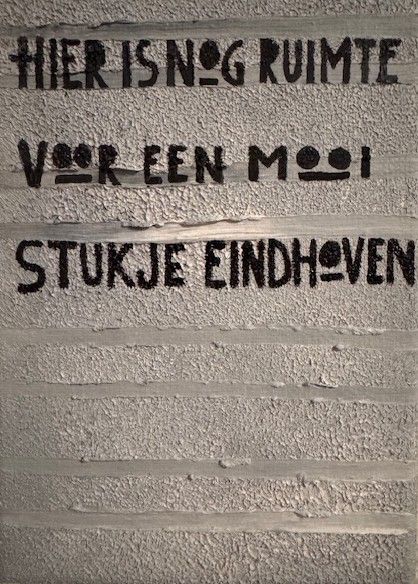 HIER IS NOG RUIMTE
VOOR EEN MOOI
STUKJE EINDHOVEN